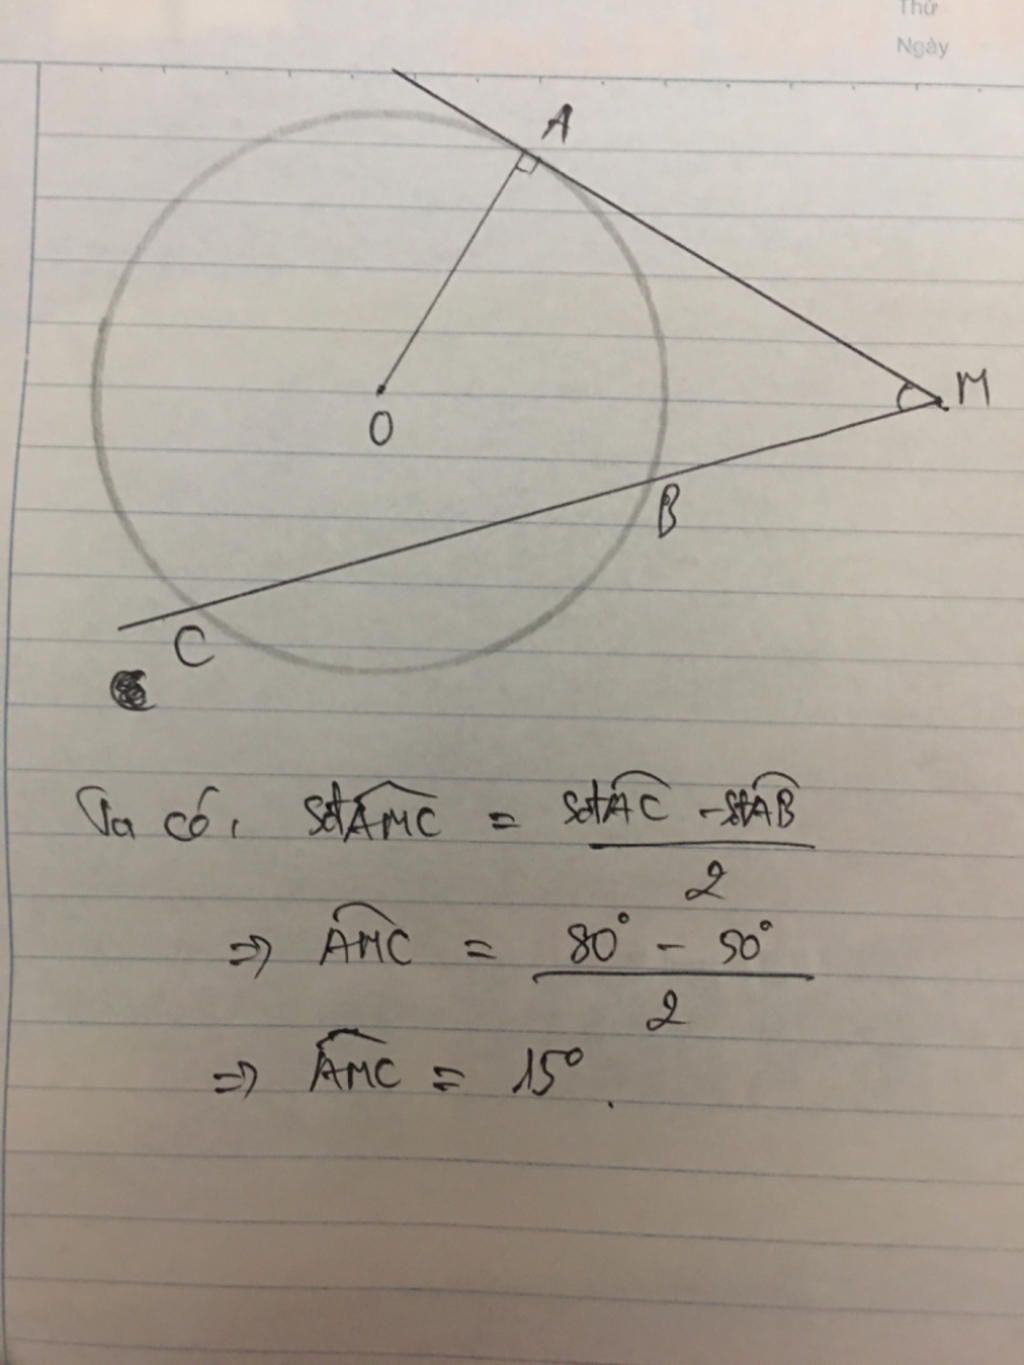 Thứ
Ngày
A
M
O
B
C
Ta có, sđ AMC = sđ AC - sđ AB
2
=> AMC = 80° - 50°
2
=> AMC = 15°.